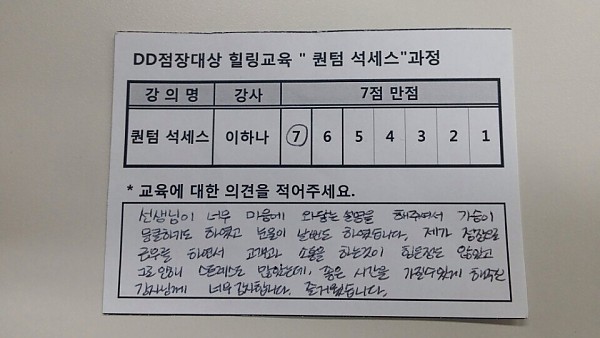 DD점장대상 힐링교육 " 퀀텀 석세스"과정
강 의 명 강사 7점 만점
퀀텀 석세스 이하나 7 6 5 4 3 2 1
* 교육에 대한 의견을 적어주세요.
선생님이 너무 마음에 와닿는 설명을 해주셔서 가슴이
뭉클하기도 하였고 눈물이 날뻔도 하였습니다. 제가 점장으로
근무를 하면서 고객과 소통을 하는것이 힘든점도 많았고
그로 인해 스트레스도 많았는데, 좋은 시간을 가질수있게 해주신
강사님께 너무 감사합니다. 즐거웠습니다.